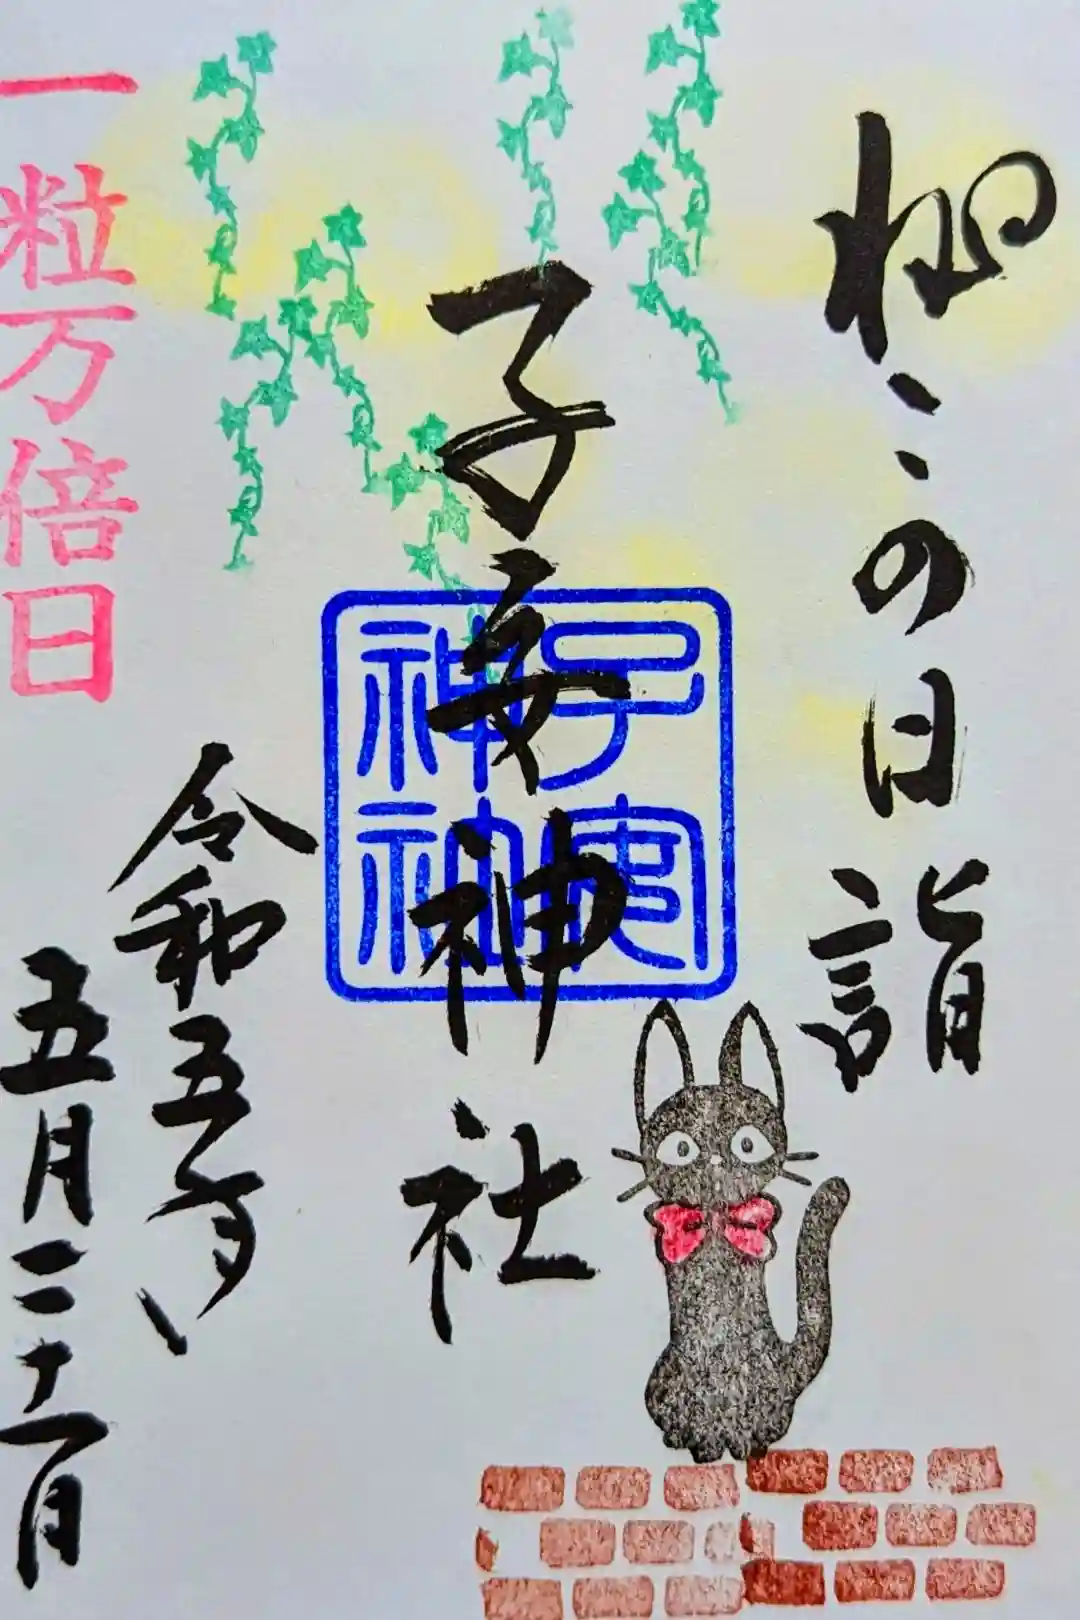 ねこの日詣
子安神社
子安
神社
一粒万倍日
令和五年
五月二十一日